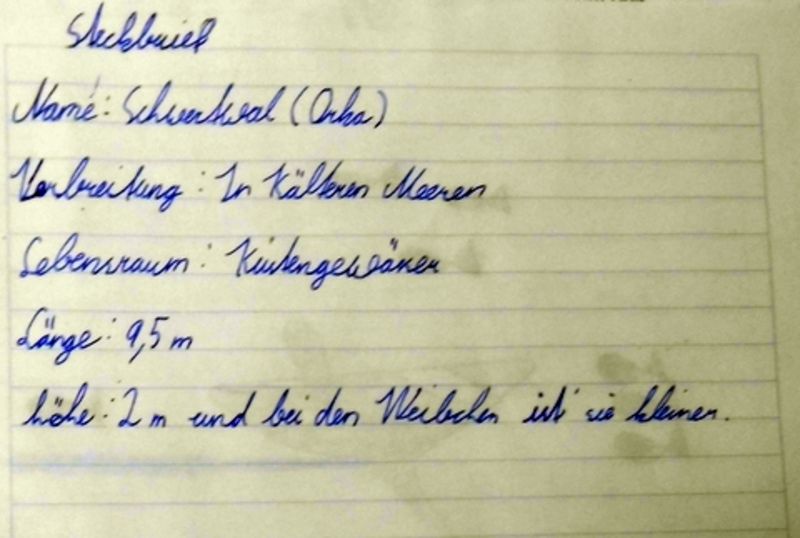 Steckbrief
Name: Schwertwal (Orka)
Verbreitung: In Kälteren Meeren
Lebensraum: Küstengewässer
Länge: 9,5 m
höhe: 2 m und bei den Weibchen ist sie kleiner.